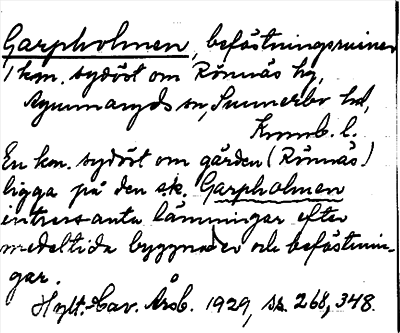 Garpholmen, befästningsruiner
1 km. sydöst om Rönnäs by,
Agunnaryds sn, Sunnerbo hd,
Kronob. l.
En km. sydöst om gården (Rönnäs)
ligga på den s.k. Garpholmen
intressanta lämningar efter
medeltida byggnader och befästnin-
gar.
Hylt.-Cav. Årsb. 1929, ss. 268, 348.